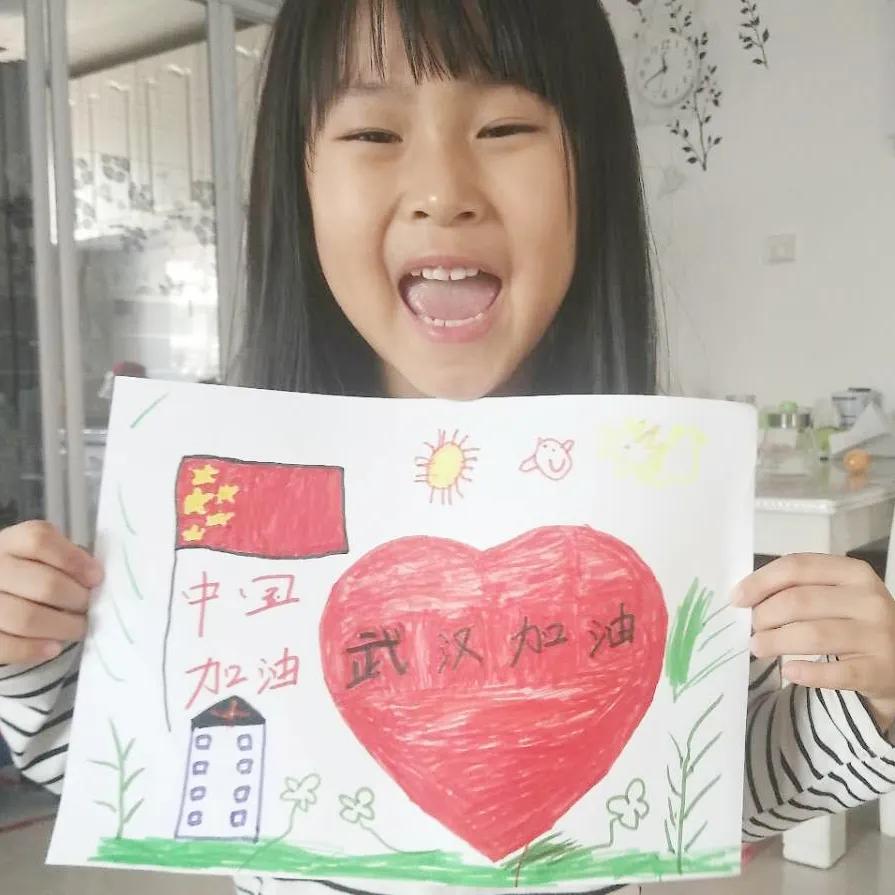 中国
加油
武汉加油